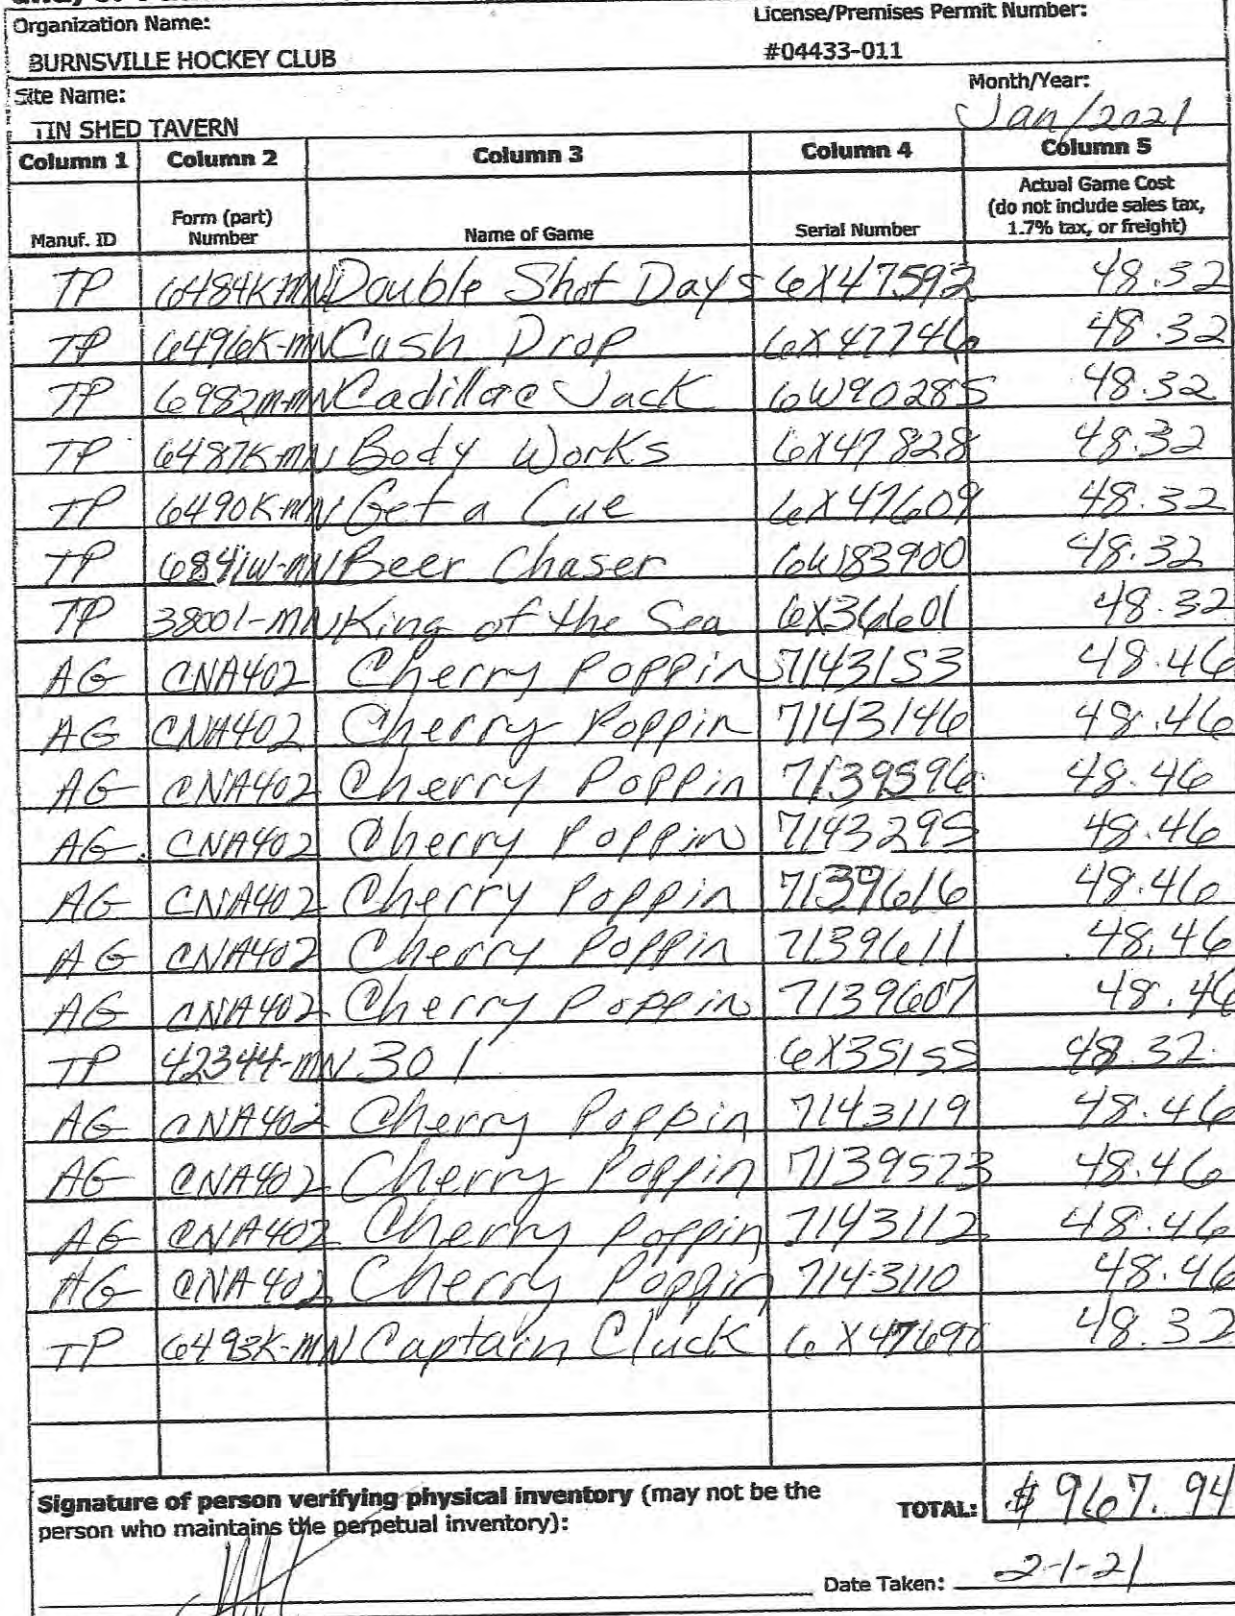 Organization Name: License/Premises Permit Number:
BURNSVILLE HOCKEY CLUB #04433-011
Site Name: Month/Year:
TIN SHED TAVERN Jan/2021
Column 1 Column 2 Column 3 Column 4 Column 5
Manuf. ID Form (part) Number Name of Game Serial Number Actual Game Cost (do not include sales tax, 1.7% tax, or freight)
TP 6484K-MN Double Shot Days 6X47592 48.32
TP 6496K-MN Cash Drop 6X47746 48.32
TP 6982M-MN Cadillac Jack 6W90285 48.32
TP 6487K-MN Body Works 6X47828 48.32
TP 6490K-MN Get a Cue 6X47609 48.32
TP 6841W-MN Beer Chaser 6W83900 48.32
TP 38001-MN King of the Sea 6X36601 48.32
AG CNA402 Cherry Poppin 7143153 48.46
AG CNA402 Cherry Poppin 7143146 48.46
AG CNA402 Cherry Poppin 7139596 48.46
AG CNA402 Cherry Poppin 7143295 48.46
AG CNA402 Cherry Poppin 7139616 48.46
AG CNA402 Cherry Poppin 7139611 48.46
AG CNA402 Cherry Poppin 7139607 48.46
TP 42344-MN 301 6X35155 48.32
AG CNA402 Cherry Poppin 7143119 48.46
AG CNA402 Cherry Poppin 7139573 48.46
AG CNA402 Cherry Poppin 7143112 48.46
AG CNA402 Cherry Poppin 7143110 48.46
TP 6493K-MN Captain Cluck 6X47690 48.32
Signature of person verifying physical inventory (may not be the
person who maintains the perpetual inventory):
TOTAL: $967.94
Date Taken: 2-1-21